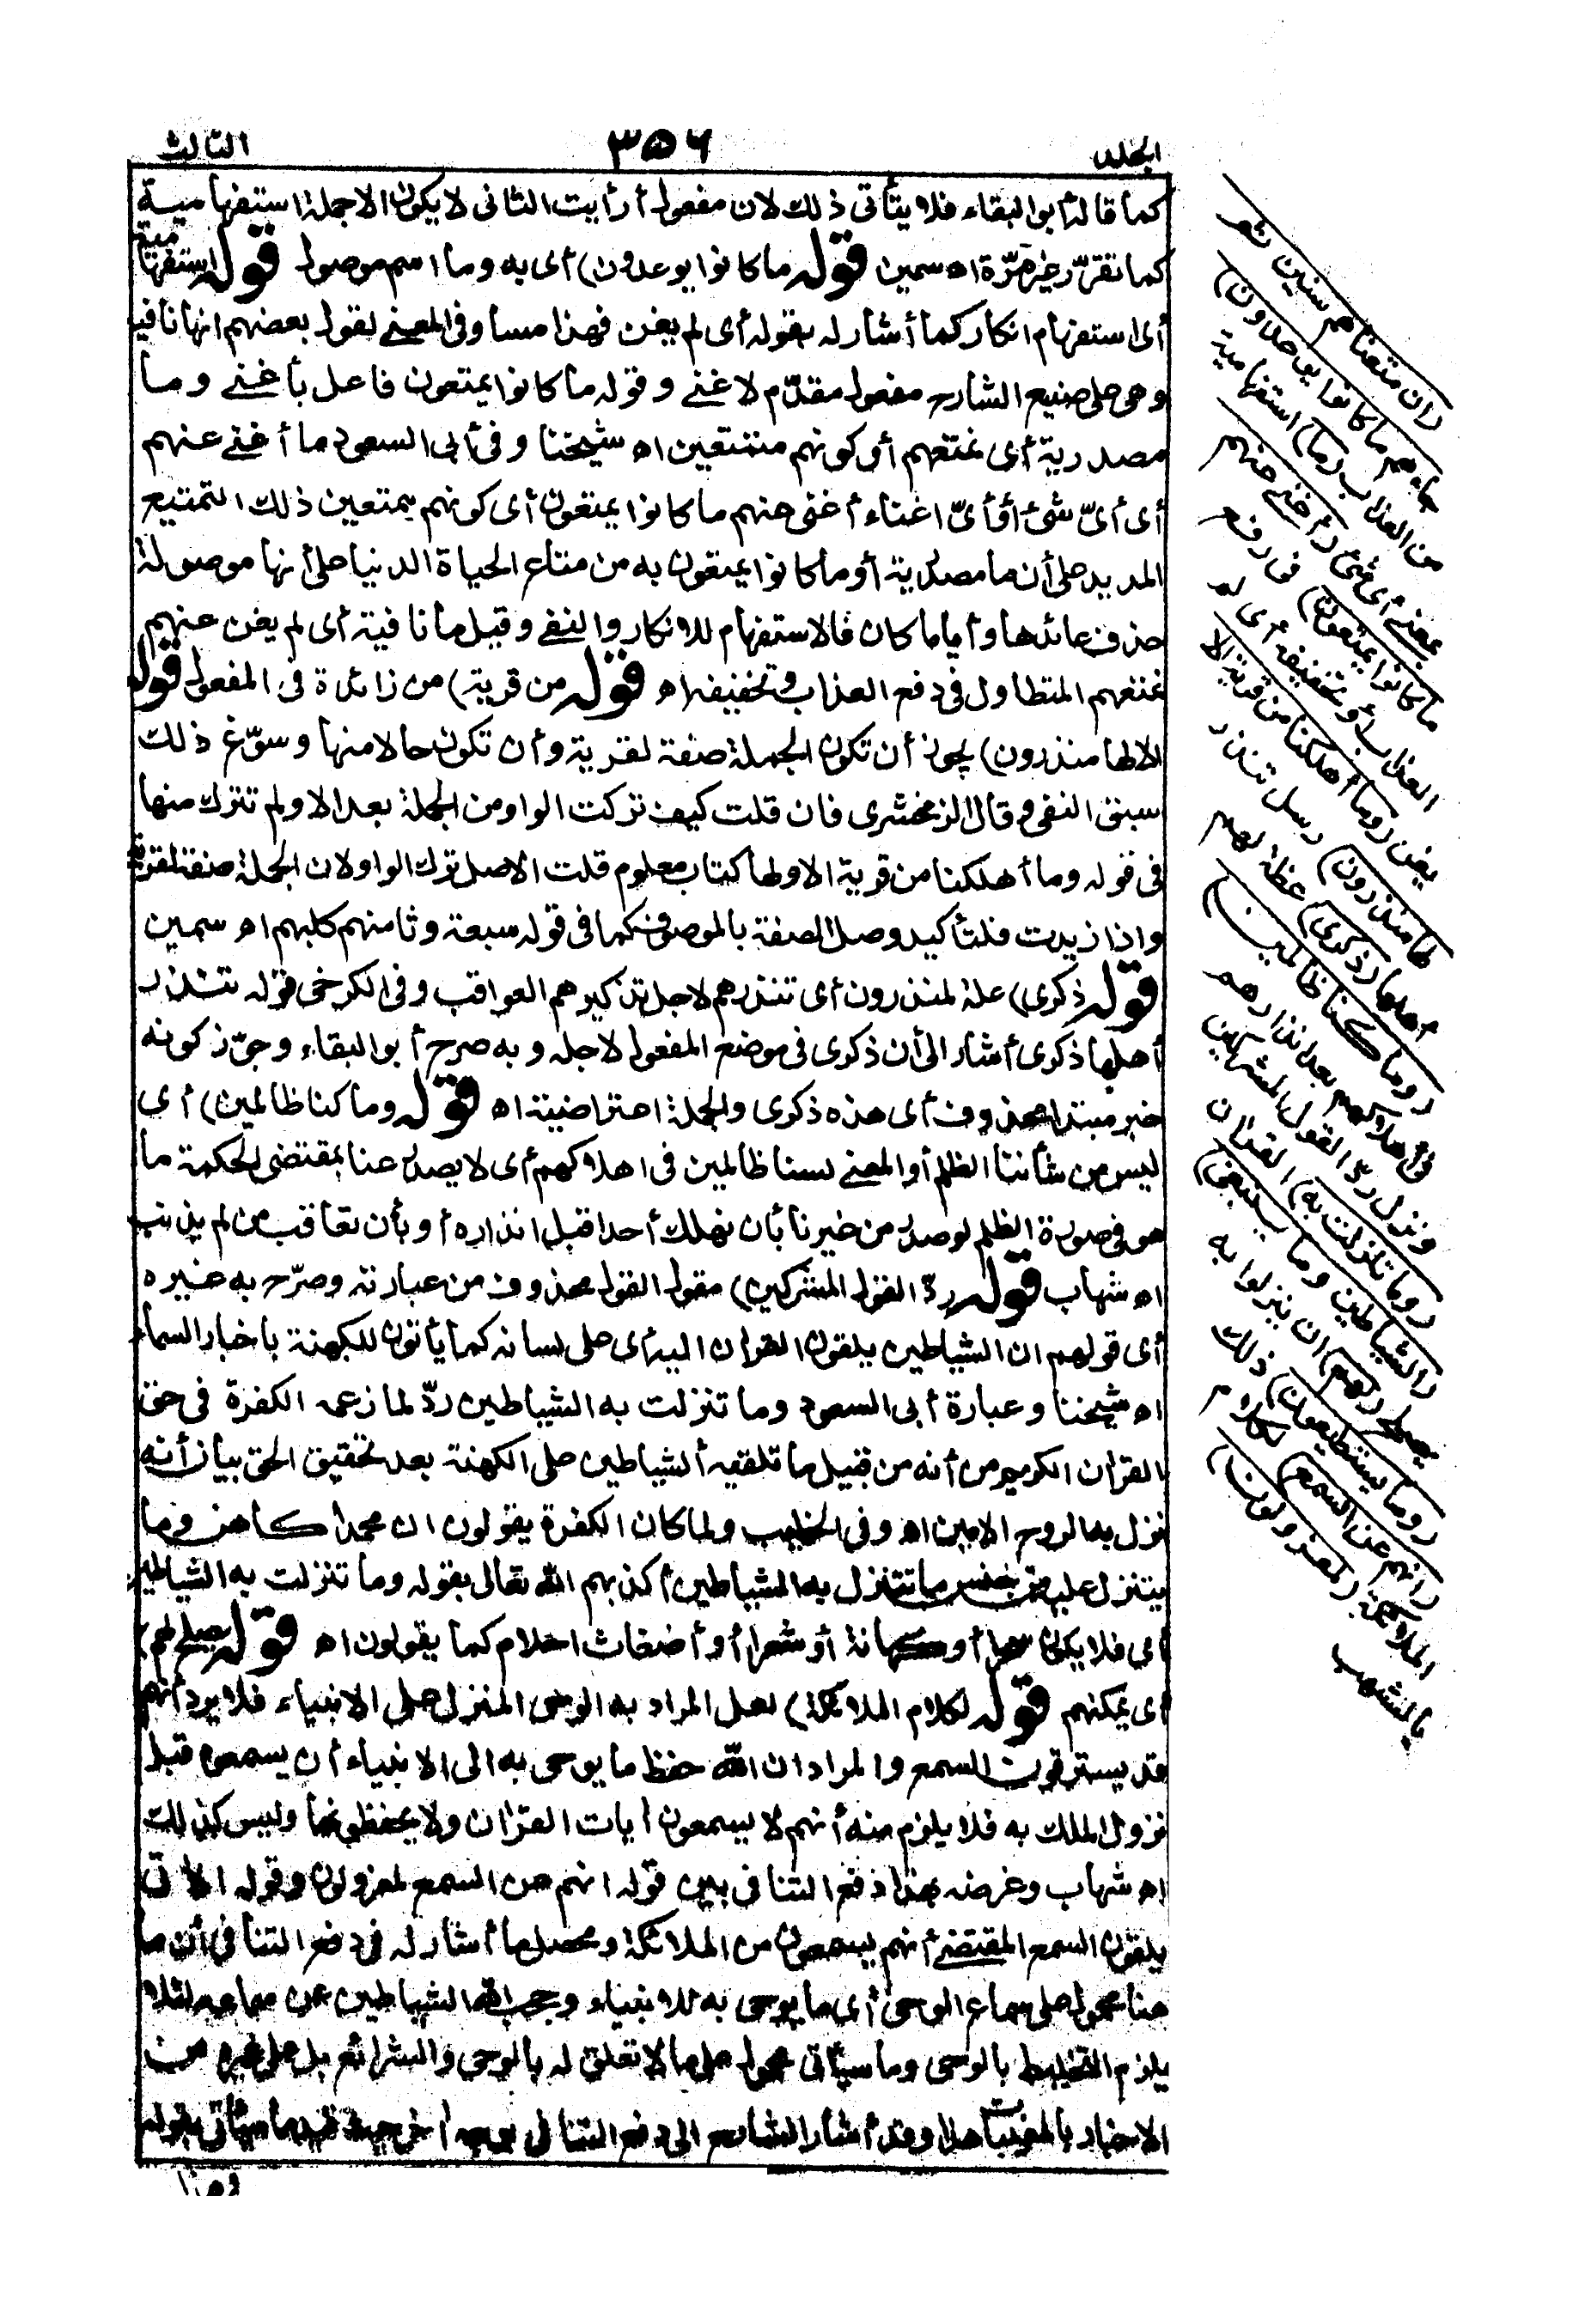 الجلد ٣٥٦ الثالث
كما قاله أبو البقاء فلا يتأتى ذلك لان مفعول أرأيت الثانى لا يكون الا جملة استفهامية
كما تقرّر غير مرّة اه سمين قوله ما كانوا يوعدون) أى به وما اسم موصول قوله استفهامية
أى استفهام انكار كما أشار له بقوله أى لم يغن فهذا مساو فى المعنى لقول بعضهم انها نافية
وهى على صنيع الشارح مفعول مقدّم لاغنى وقوله ما كانوا يمتعون فاعل بأغنى وما
مصدرية أى تمتعهم أو كونهم متمتعين اه شيخنا وفى أبى السعود ما أغنى عنهم
أى أىّ شئ أو أىّ اغناء أغنى عنهم ما كانوا يمتعون أى كونهم يمتعين ذلك التمتيع
المديد على أن ما مصدرية أو ما كانوا يمتعون به من متاع الحياة الدنيا على أنها موصولة
حذف عائدها وأياما كان فالاستفهام للانكار والنفى وقيل ما نافية أى لم يغن عنهم
تمتعهم المتطاول فى دفع العذاب وتخفيفه اه قوله من قرية) من زائدة فى المفعول قوله
الا لها منذرون) يجوز أن تكون الجملة صفة لقرية وأن تكون حالا منها وسوّغ ذلك
سبق النفى وقال الزمخشرى فان قلت كيف تركت الواو من الجملة بعد الا ولم تترك منها
فى قوله وما أهلكنا من قرية الا ولها كتاب معلوم قلت الاصل ترك الواو لان الجملة صفة لقرية
واذا زيدت فلتأكيد وصل الصفة بالموصوف كما فى قوله سبعة وثامنهم كلبهم اه سمين
قوله ذكرى) علة لمنذرون أى تنذرهم لاجل تذكيرهم العواقب وفى الكرخى قوله تنذر
أهلها ذكرى أشار الى أن ذكرى فى موضع المفعول لاجله وبه صرح أبو البقاء وجوّز كونه
خبر مبتدا محذوف أى هذه ذكرى والجملة اعتراضية اه قوله وما كنا ظالمين) أى
ليس من شأننا الظلم أو المعنى لسنا ظالمين فى اهلاكهم أى لا يصدر عنا بمقتضى الحكمة ما
هو فى صورة الظلم لو صدر من غيرنا بأن نهلك أحدا قبل انذاره أو بأن نعاقب من لم يذنب
اه شهاب قوله ردّ القول المشركين) مقول القول محذوف من عبارته وصرّح به غيره
أى قولهم ان الشياطين يلقون القرآن اليه أى على لسانه كما يأتون للكهنة باخبار السماء
اه شيخنا وعبارة أبى السعود وما تنزلت به الشياطين ردّ لما زعمه الكفرة فى حق
القرآن الكريم من أنه من قبيل ما تلقيه الشياطين على الكهنة بعد تحقيق الحق ببيان أنه
نزل به الروح الامين اه وفى الخطيب ولما كان الكفرة يقولون ان محمدا كاهن وما
يتنزل عليه من جنس ما تتنزل به الشياطين أكذبهم الله تعالى بقوله وما تنزلت به الشياطين
أى فلا يكون سحرا أو كهانة أو شعرا أو أضغاث احلام كما يقولون اه قوله يصلح لهم)
أى يمكنهم قوله لكلام الملائكة) لعل المراد به الوحى المنزل على الانبياء فلا يرد أنهم
قد يسترقون السمع والمراد ان الله حفظ ما يوحى به الى الانبياء أن يسمعوه قبل
نزول الملك به فلا يلزم منه أنهم لا يسمعون آيات القرآن ولا يحفظونها وليس كذلك
اه شهاب وغرضه بهذا دفع التنافى بين قوله انهم عن السمع لمعزولون وقوله الآتى
يلقون السمع المقتضى أنهم يسمعون من الملائكة ومحصل ما أشار له فى دفع التنافى أن ما
هنا محمول على سماع الوحى أى ما يوحى به للانبياء وحجب الله الشياطين عن سماعه لئلا
يلزم التخليط بالوحى وما سيأتى محمول على ما لا تعلق له بالوحى والشرائع بل على غيره من
الاخبار بالمغيبات اه وقد أشار الشارح الى دفع التنافى بوجه آخر حيث قيد ما سيأتى بقوله
ان متعناهم سنين ثم
جاءهم ما كانوا يوعدون)
من العذاب (ما) استفهامية
بمعنى أى شئ (أغنى عنهم
ما كانوا يمتعون) فى دفع
العذاب أو تخفيفه أى لم
يغن (وما أهلكنا من قرية الا
لها منذرون) رسل تنذر
أهلها (ذكرى) عظة لهم
(وما كنا ظالمين)
فى اهلاكهم بعد انذارهم
ونزل ردّ القول المشركين
(وما تنزلت به) القرآن
(الشياطين وما ينبغى)
يصلح (لهم) ان ينزلوا به
(وما يستطيعون) ذلك
(انهم عن السمع) لكلام
الملائكة (لمعزولون)
بالشهب